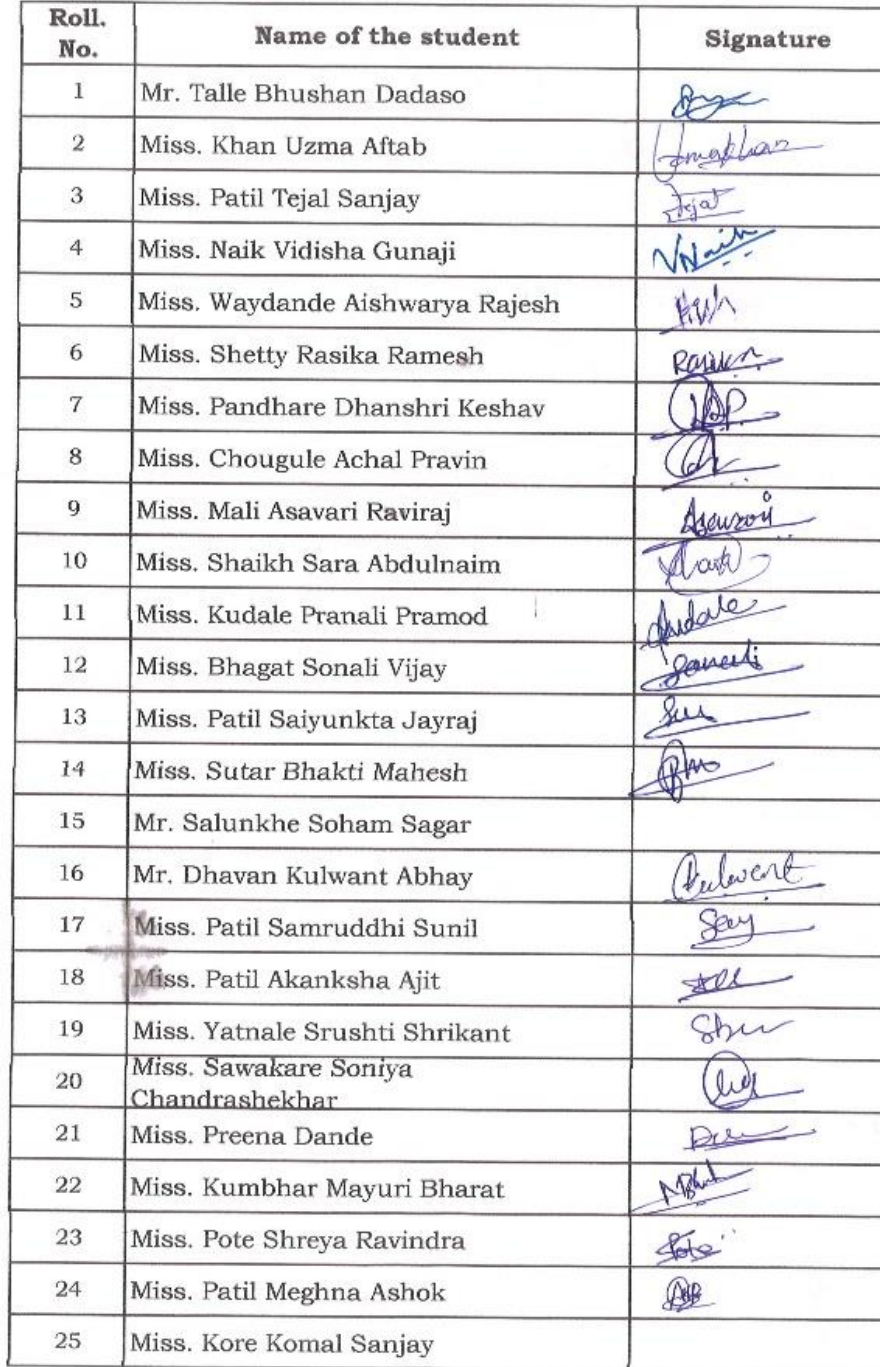 Roll. No. Name of the student Signature
1 Mr. Talle Bhushan Dadaso
2 Miss. Khan Uzma Aftab
3 Miss. Patil Tejal Sanjay Tejal
4 Miss. Naik Vidisha Gunaji VNaik
5 Miss. Waydande Aishwarya Rajesh
6 Miss. Shetty Rasika Ramesh
7 Miss. Pandhare Dhanshri Keshav
8 Miss. Chougule Achal Pravin
9 Miss. Mali Asavari Raviraj
10 Miss. Shaikh Sara Abdulnaim
11 Miss. Kudale Pranali Pramod
12 Miss. Bhagat Sonali Vijay
13 Miss. Patil Saiyunkta Jayraj
14 Miss. Sutar Bhakti Mahesh
15 Mr. Salunkhe Soham Sagar
16 Mr. Dhavan Kulwant Abhay
17 Miss. Patil Samruddhi Sunil
18 Miss. Patil Akanksha Ajit
19 Miss. Yatnale Srushti Shrikant
20 Miss. Sawakare Soniya
Chandrashekhar
21 Miss. Preena Dande
22 Miss. Kumbhar Mayuri Bharat
23 Miss. Pote Shreya Ravindra Pote
24 Miss. Patil Meghna Ashok
25 Miss. Kore Komal Sanjay